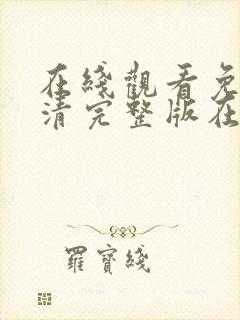 在綫觀看免
清完整版在
羅寶綫